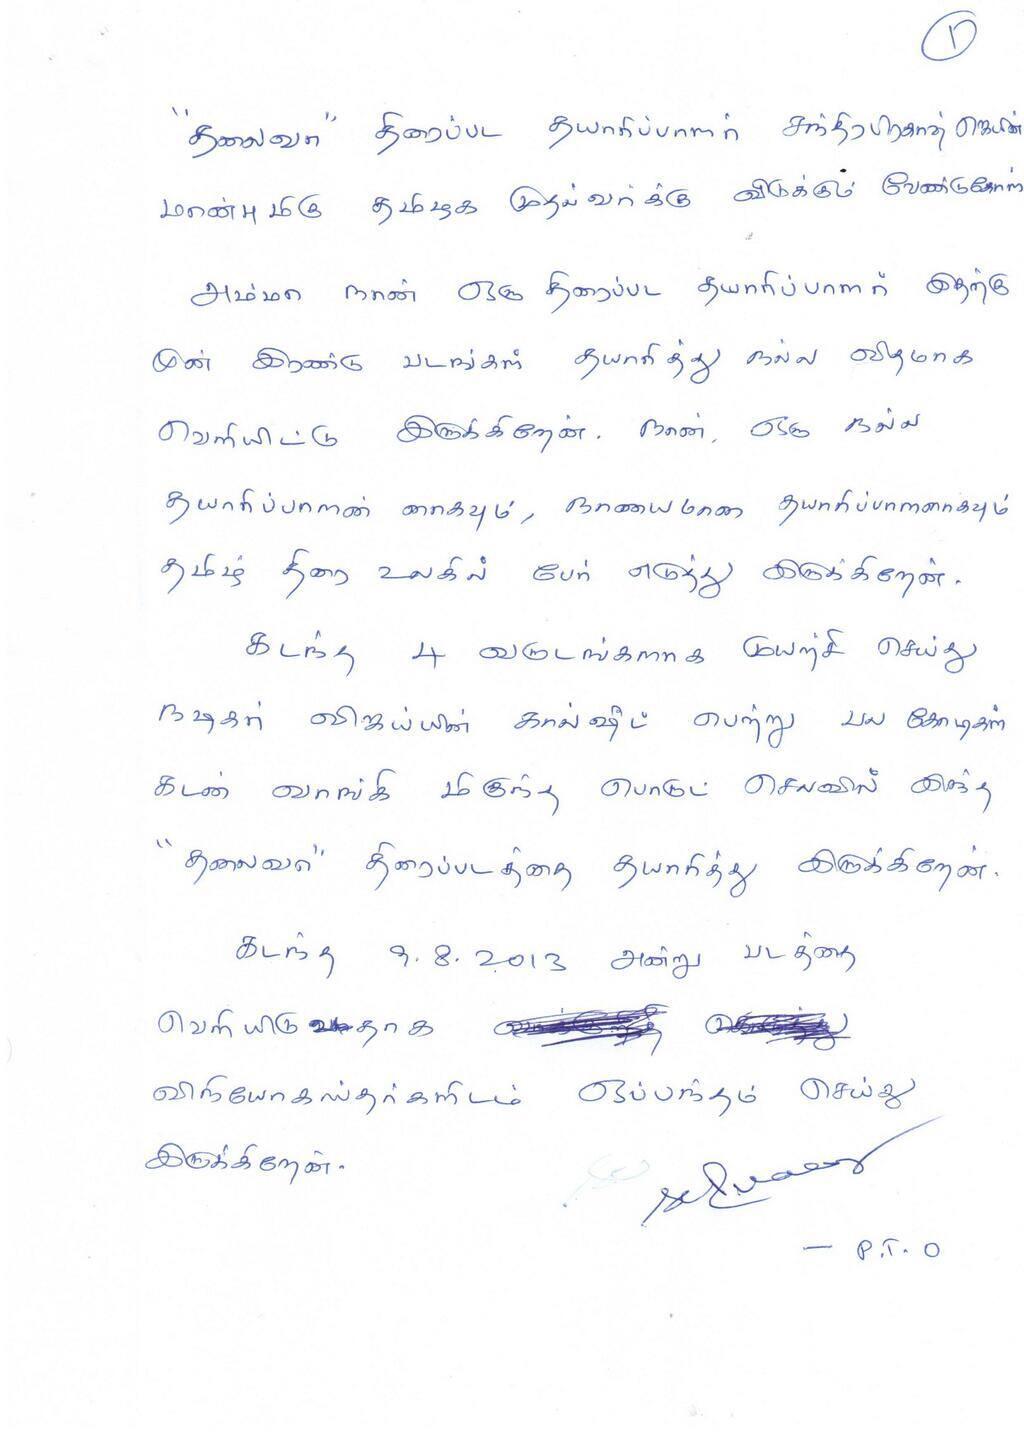 1
"தலைவா" திரைப்பட தயாரிப்பாளர் சந்திரபிரகாஷ் ஜெயின்
மாண்புமிகு தமிழக முதல்வர்க்கு விடுக்கும் வேண்டுகோள்
அம்மா நான் ஒரு திரைப்பட தயாரிப்பாளர் இதற்கு
முன் இரண்டு படங்கள் தயாரித்து நல்ல விதமாக
வெளியிட்டு இருக்கிறேன். நான், ஒரு நல்ல
தயாரிப்பாளன் ளாகவும், நாணயமான தயாரிப்பாளனாகவும்
தமிழ் திரை உலகில் பேர் எடுத்து இருக்கிறேன்.
கடந்த 4 வருடங்களாக முயற்சி செய்து
நடிகர் விஜய்யின் கால்ஷீட் பெற்று பல கோடிகள்
கடன் வாங்கி மிகுந்த பொருட் செலவில் இந்த
"தலைவா" திரைப்படத்தை தயாரித்து இருக்கிறேன்.
கடந்த 9.8.2013 அன்று படத்தை
வெளியிடுவதாக
வினியோகஸ்தர்களிடம் ஒப்பந்தம் செய்து
இருக்கிறேன்.
— P.T.O